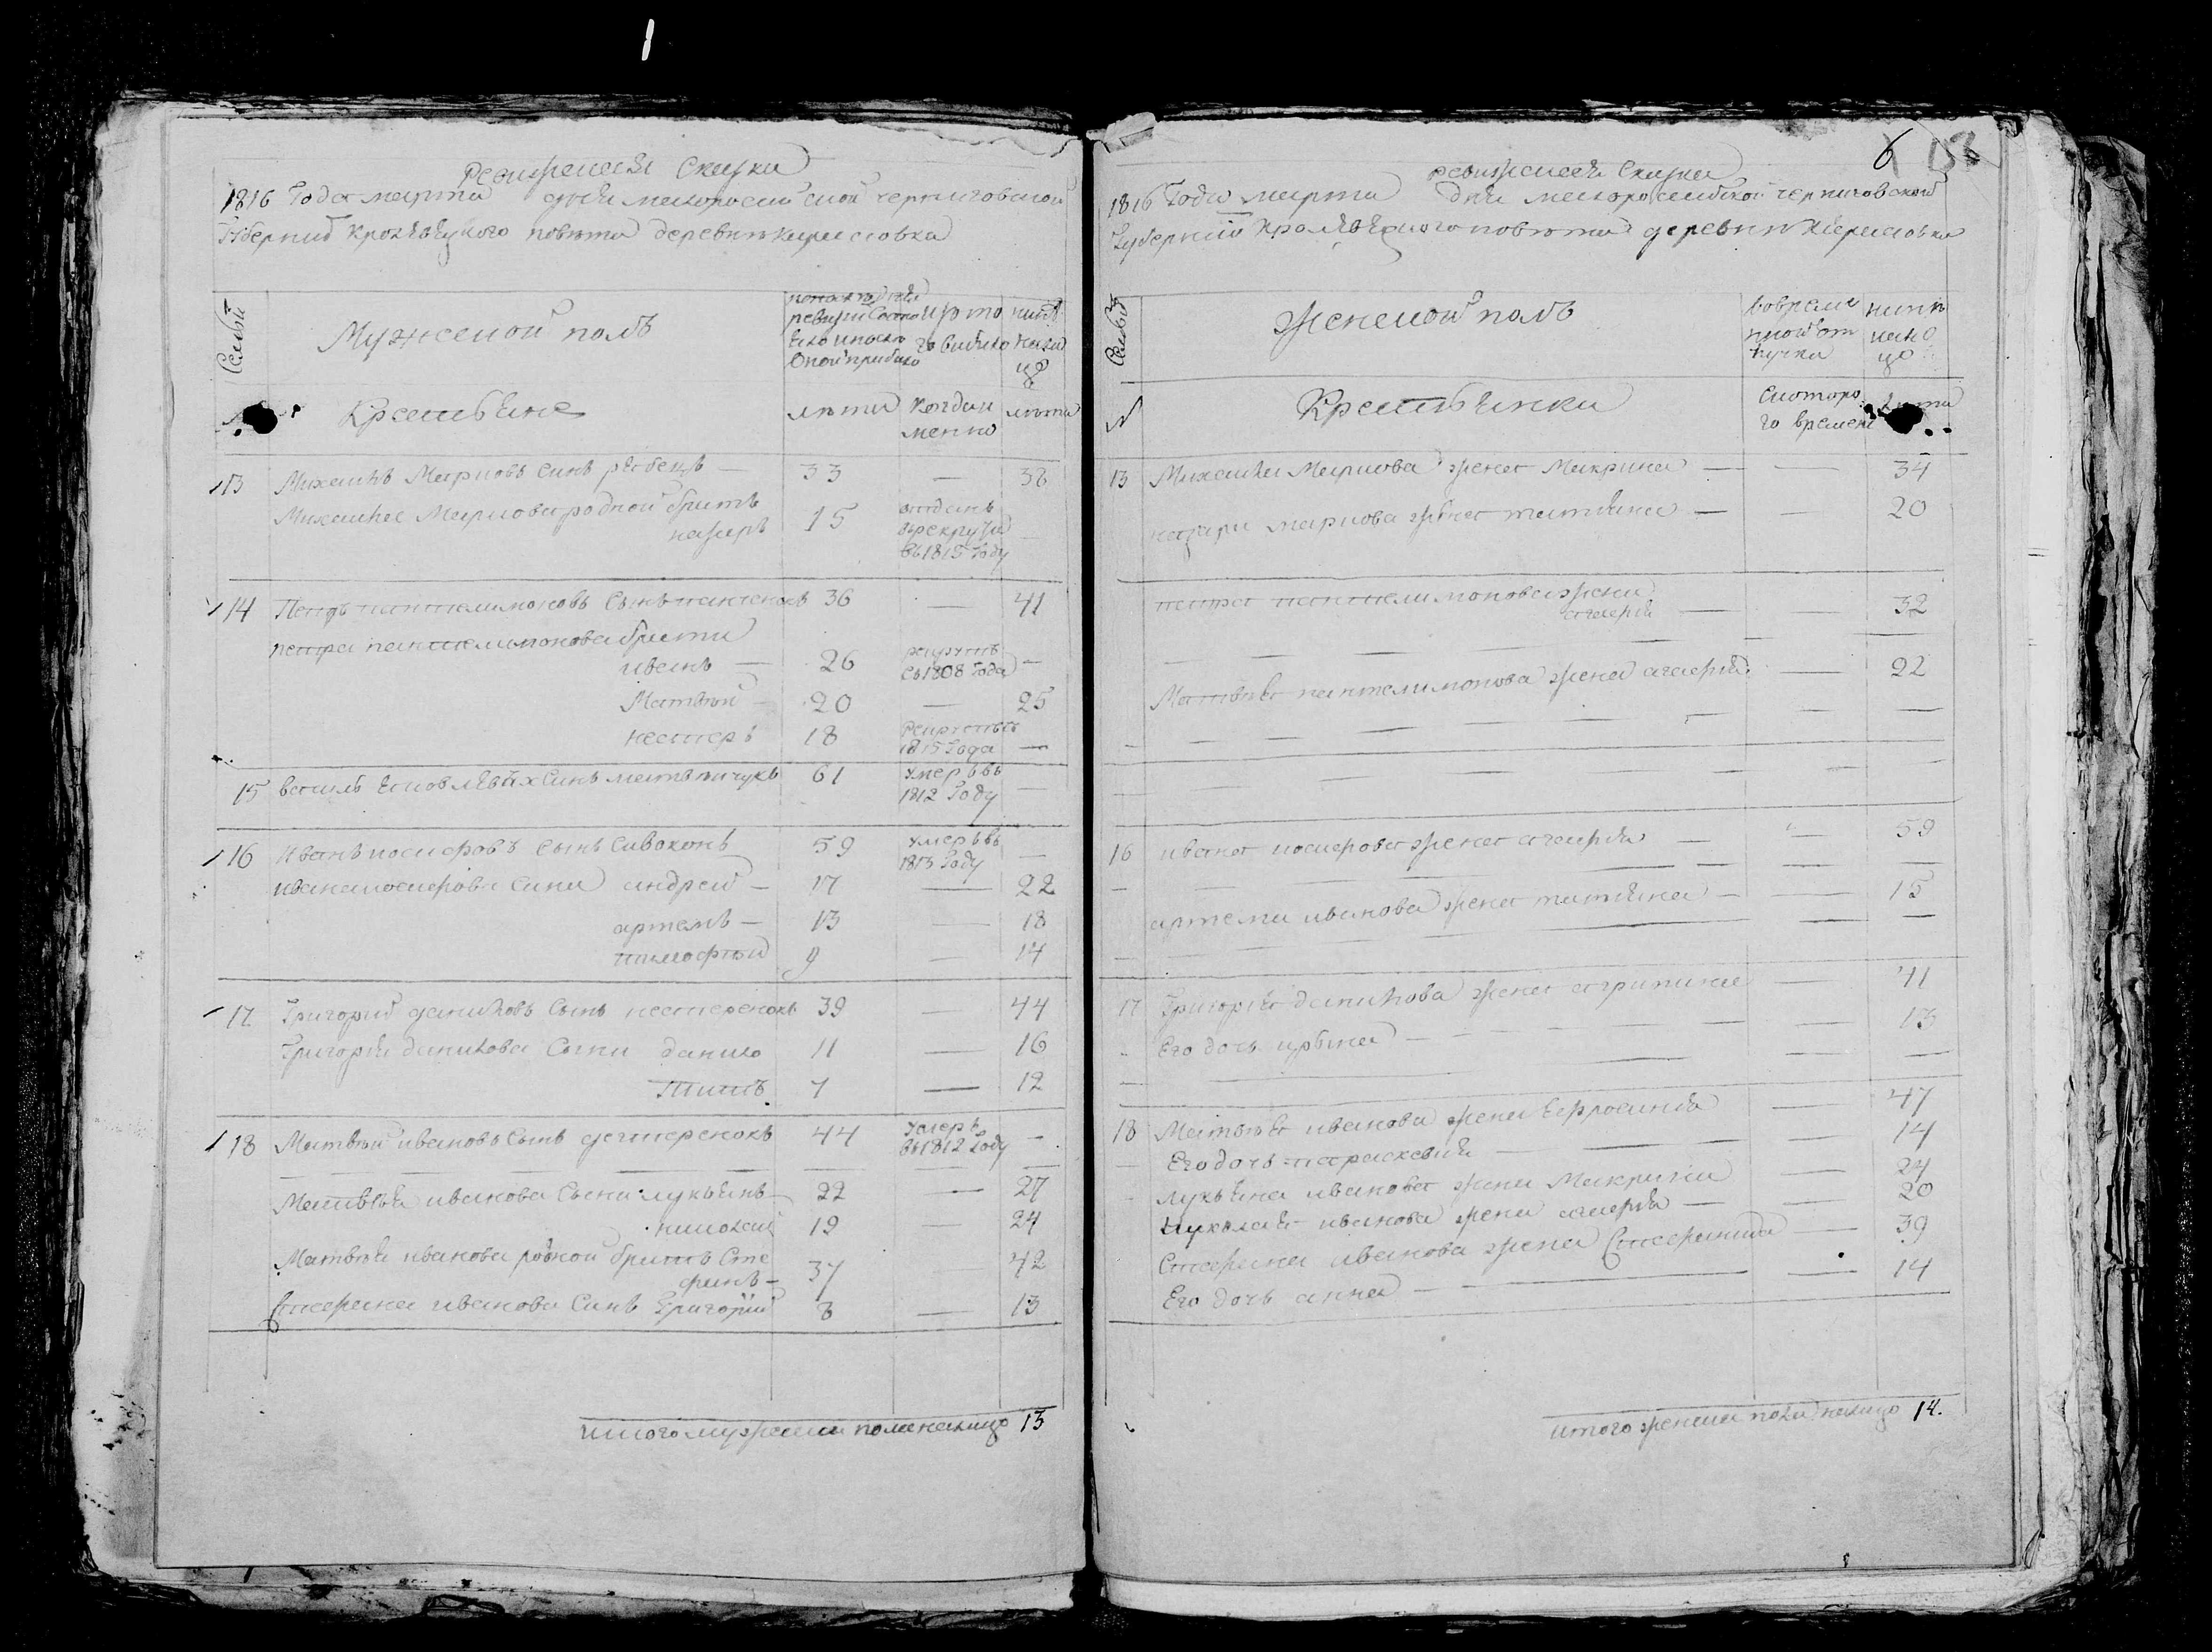 Ревизская Скаска
1816 Года марта дня малоросийской черниговской
Губернии Кролевецкого повета деревни
Семьи
Мужеской полъ
по последней
ревизии Состо
яло и после
Оной прибыло
изъ то
го выбило
ныне
на ли
цо
№
Крестьяне
лета
Когда и
менно
лета
13 Михаилъ Марковъ Синъ рябецъ — 33 — 38
Михаила Маркова родной братъ
назаръ 15 отданъ
в рекруты
въ 1815 Году —
14 Петръ пантелимоновъ Сынъ 36 — 41
петра пантелимонова брати
иванъ — 26 рекрутъ
съ 1808 Года —
Матвей — 20 — 25
нестеръ 18 Рекрутъ съ
1815 Года —
15 василь яковлевъ Синъ матвейчукъ 61 умеръ въ
1812 Году —
16 Иванъ иосифовъ Сынъ Сивоконь 59 умеръ въ
1813 Году —
ивана иосифова Сини андрей — 17 — 22
артемъ — 13 — 18
тимофей 9 — 14
17 Григорий даниловъ Сынъ нестеренокъ 39 — 44
Григория данилова Сыни данило 11 — 16
Титъ 7 — 12
18 Матвей ивановъ Сынъ дегтеренокъ 44 Умеръ
въ 1812 Году —
Матвея иванова Сыни лукьянъ — 22 — 27
николай 19 — 24
Матвея иванова родной братъ Сте
фанъ — 37 — 42
Стефана иванова Синъ Григорий 8 — 13
итого мужеска пола налицо 13
6
ревизская Скаска
1816 Года марта дня малоросийской черниговской
Губернии Кролевецкого повета деревни
Семьи
Женской полъ
во време
нной от
лучки
ныне
нали
цо
№
Крестьянки
С которо
го времени
Лета
13 Михаила Маркова жена Макрина — — 34
назара маркова жена татияна — — 20
петра пантелимонова жена
агафия — — 32
Матвея пантелимонова жена агафия — 22
16 ивана иосифова жена агафия — — 59
артема иванова жена татияна — — 15
17 Григория данилова жена агрипина — 41
Его дочь — — 13
18 Матвея иванова жена Ефросиния — 47
Его дочь параскевия — — 14
лукьяна иванова жена Макрина — 24
николая иванова жена агафия — — 20
Стефана иванова жена Стефанида — 39
Его дочь анна — — 14
итого женска пола налицо 14.